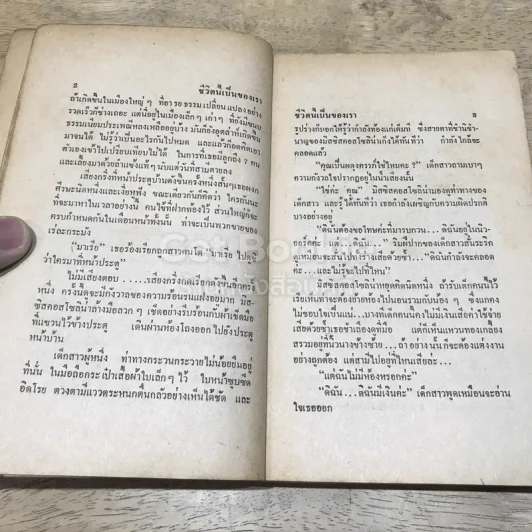 2
ชีวิตนี้เป็นของเรา
ถ้าเกิดขึ้นในเมืองใหญ่ ๆ ที่อารยธรรมเปลี่ยนแปลงอย่าง
รวดเร็วก็ช่างเถอะ แต่นี่อยู่ในเมืองเล็ก ๆ เก่า ๆ ที่ยังมีขนบ
ธรรมเนียมประเพณีหลงเหลืออยู่บ้าง
มาจนได้ ไม่รู้ว่าเป็นอะไรกันไปหมด และแล้วก็อดคิดเอา
ตัวเองเข้าไปเปรียบเทียบไม่ได้ ในการที่เธอมีลูกถึง 7 คน
และเลี้ยงมาด้วยลำแข้งแท้ ๆ นับแต่วันที่สามีตายลง
เสียงกริ่งที่หน้าประตูบ้านดังขึ้นครั้งหนึ่ง
ศีรษะนิดหน่อยและเงี่ยหูฟัง ขณะเดียวกันก็คิดว่า ใครกันนะ
ที่จะมาหาในเวลาอย่างนี้ คนใช้ที่ฝากท้องไว้ ส่วนใหญ่ก็จะ
ครบกำหนดกันในเดือนหน้าทั้งนั้น ถ้าจะเป็นพวกขายของ
เร่ละกระมัง
“มาเรีย” เธอร้องเรียกลูกสาวคนโต “มาเรีย ไปดู
ว่าใครมาที่หน้าประตู”
ไม่มีเสียงตอบ.....เสียงกริ่งกดเรียกดังขึ้นอีกครั้ง
หนึ่ง ครั้งนี้ดูจะมีกังวาลของความร้อนรนแฝงอยู่มาก มิส
ซิสคอสโซลิน่าวางมือลวก ๆ เช็ดอย่างรีบร้อนกับผ้าเช็ดมือ
ที่แขวนไว้ข้างประตู เดินผ่านห้องโถงออกไปยังประตู
หน้าบ้าน
เด็กสาวผู้หนึ่ง ท่าทางกระวนกระวายไม่น้อยยืนอยู่
ที่นั่น ในมือถือกระเป๋าเสื้อผ้าใบเล็ก ๆ ไว้ ใบหน้าซูบซีด
อิดโรย ดวงตามีแววตระหนกตนกลัวอย่างเห็นได้ชัด และ
ชีวิตนี้เป็นของเรา
3
รูปร่างก็บอกให้รู้ว่ากำลังท้องแก่เต็มที ซึ่งสายตาที่ชำนิชำ
นาญของมิสซิสคอสโซลิน่าเก็งได้ทันทีว่า กำลังใกล้จะ
คลอดแล้ว
“คุณเป็นผดุงครรภ์ใช่ไหมคะ ?” เด็กสาวถามเบาๆ
ความกังวลใจปรากฏอยู่ในน้ำเสียงนั้น
“ใช่ค่ะ คุณ” มิสซิสคอสโซลิน่ามองดูที่ท่าทางของ
เด็กสาว และรู้ได้ทันทีว่า เธอกำลังเผชิญกับความผิดปรกติ
บางอย่างอยู่
“ดิฉันต้องขอโทษค่ะที่มารบกวน...ดิฉันอยู่ในนิว-
ยอร์คค่ะ...” ริมฝีปากของเด็กสาวสั่นระริก
ดูเหมือนจะสั่นไปทั้งร่างเสียด้วยซ้ำ...“ดิฉันกำลังจะคลอด
ค่ะ...และมิรู้จะไปที่ไหน”
มิสซิสคอสโซลิน่าหยุดคิดนิดหนึ่ง ถ้ารับเด็กคนนี้ไว้
เรียเห็นเท่าจะต้องย้ายห้องไปนอนรวมกับน้อง ๆ ซึ่งแกคง
ไม่ชอบใจเป็นแน่...บางทีเด็กคนนี้คงไม่มีเงินเสียค่าใช้จ่าย
เสียด้วยซ้ำเธอชำเลืองดูที่มือ แต่ก็เห็นแหวนทองเกลี้ยง
สรวมอยู่ที่นิ้วนางข้างซ้าย...ถ้าอย่างนั้นก็จะต้องแต่งงาน
อย่างถูกต้อง แต่สามีไปอยู่ที่ไหนเสียล่ะ...
“แต่ฉันไม่มีห้องหรอกค่ะ”
“ดิฉัน...ดิฉันมีเงินค่ะ” เด็กสาวพูดเหมือนจะอ่าน
ใจเธอออก